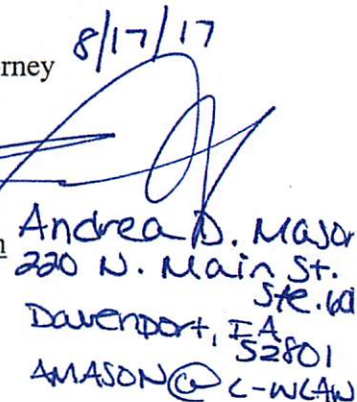 8/17/17
rney
Andrea D. Mason
220 N. Main St.
Ste. 60
Davenport, IA
52801
AMASON@C-WLAW